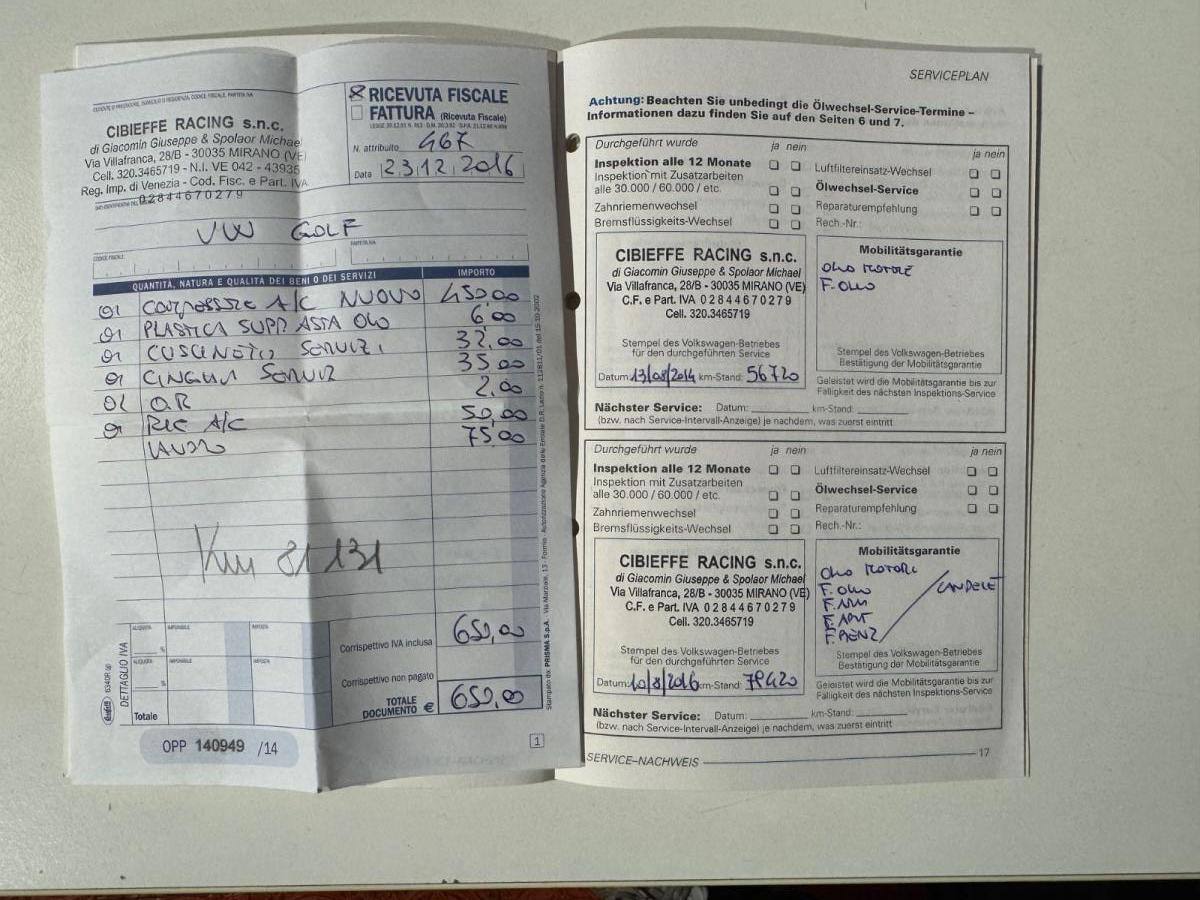 CIBIEFFE RACING s.n.c.
di Giacomin Giuseppe & Spolaor Michael
Via Villafranca, 28/B - 30035 MIRANO (VE)
Cell. 320.3465719 - N.I. VE 042 - 43935
Reg. Imp. di Venezia - Cod. Fisc. e Part. IVA
02844670279
RICEVUTA FISCALE
FATTURA (Ricevuta Fiscale)
N. attribuito 467
Data 23.12.2016
VW GOLF
CODICE FISCALE
PARTITA IVA
QUANTITÀ, NATURA E QUALITÀ DEI BENI O DEI SERVIZI IMPORTO
01 COMPRESSORE A/C NUOVO 450,00
01 PLASTICA SUPP ASTA OLIO 6,00
01 CUSCINETTO SERVIZI 32,00
01 CINGHIA SERVIZ 35,00
O.R 2,00
01 RIC A/C 50,00
LAVORO 75,00
Km 81131
DETTAGLIO IVA
ALIQUOTA IMPONIBILE IMPOSTA
%
ALIQUOTA IMPONIBILE IMPOSTA
%
Totale
Corrispettivo IVA inclusa 650,00
Corrispettivo non pagato
TOTALE DOCUMENTO € 650,00
OPP 140949 /14
1
SERVICEPLAN
Achtung: Beachten Sie unbedingt die Ölwechsel-Service-Termine –
Informationen dazu finden Sie auf den Seiten 6 und 7.
Durchgeführt wurde ja nein ja nein
Inspektion alle 12 Monate Luftfiltereinsatz-Wechsel
Inspektion mit Zusatzarbeiten
alle 30.000 / 60.000 / etc. Ölwechsel-Service
Zahnriemenwechsel Reparaturempfehlung
Bremsflüssigkeits-Wechsel Rech.-Nr.:
CIBIEFFE RACING s.n.c.
di Giacomin Giuseppe & Spolaor Michael
Via Villafranca, 28/B - 30035 MIRANO (VE)
C.F. e Part. IVA 02844670279
Cell. 320.3465719
Stempel des Volkswagen-Betriebes
für den durchgeführten Service
Datum: 13/08/2014 km-Stand: 56720
Mobilitätsgarantie
OLIO MOTORE
F. OLIO
Stempel des Volkswagen-Betriebes
Bestätigung der Mobilitätsgarantie
Geleistet wird die Mobilitätsgarantie bis zur
Fälligkeit des nächsten Inspektions-Service
Nächster Service: Datum: km-Stand:
(bzw. nach Service-Intervall-Anzeige) je nachdem, was zuerst eintritt
Durchgeführt wurde ja nein ja nein
Inspektion alle 12 Monate Luftfiltereinsatz-Wechsel
Inspektion mit Zusatzarbeiten
alle 30.000 / 60.000 / etc. Ölwechsel-Service
Zahnriemenwechsel Reparaturempfehlung
Bremsflüssigkeits-Wechsel Rech.-Nr.:
CIBIEFFE RACING s.n.c.
di Giacomin Giuseppe & Spolaor Michael
Via Villafranca, 28/B - 30035 MIRANO (VE)
C.F. e Part. IVA 02844670279
Cell. 320.3465719
Stempel des Volkswagen-Betriebes
für den durchgeführten Service
Datum: 10/8/2016 km-Stand: 79420
Mobilitätsgarantie
OLIO MOTORE
F. OLIO CANDELE
F. ARIA
F. ABIT
F. BENZ
Stempel des Volkswagen-Betriebes
Bestätigung der Mobilitätsgarantie
Geleistet wird die Mobilitätsgarantie bis zur
Fälligkeit des nächsten Inspektions-Service
Nächster Service: Datum: km-Stand:
(bzw. nach Service-Intervall-Anzeige) je nachdem, was zuerst eintritt
SERVICE–NACHWEIS 17